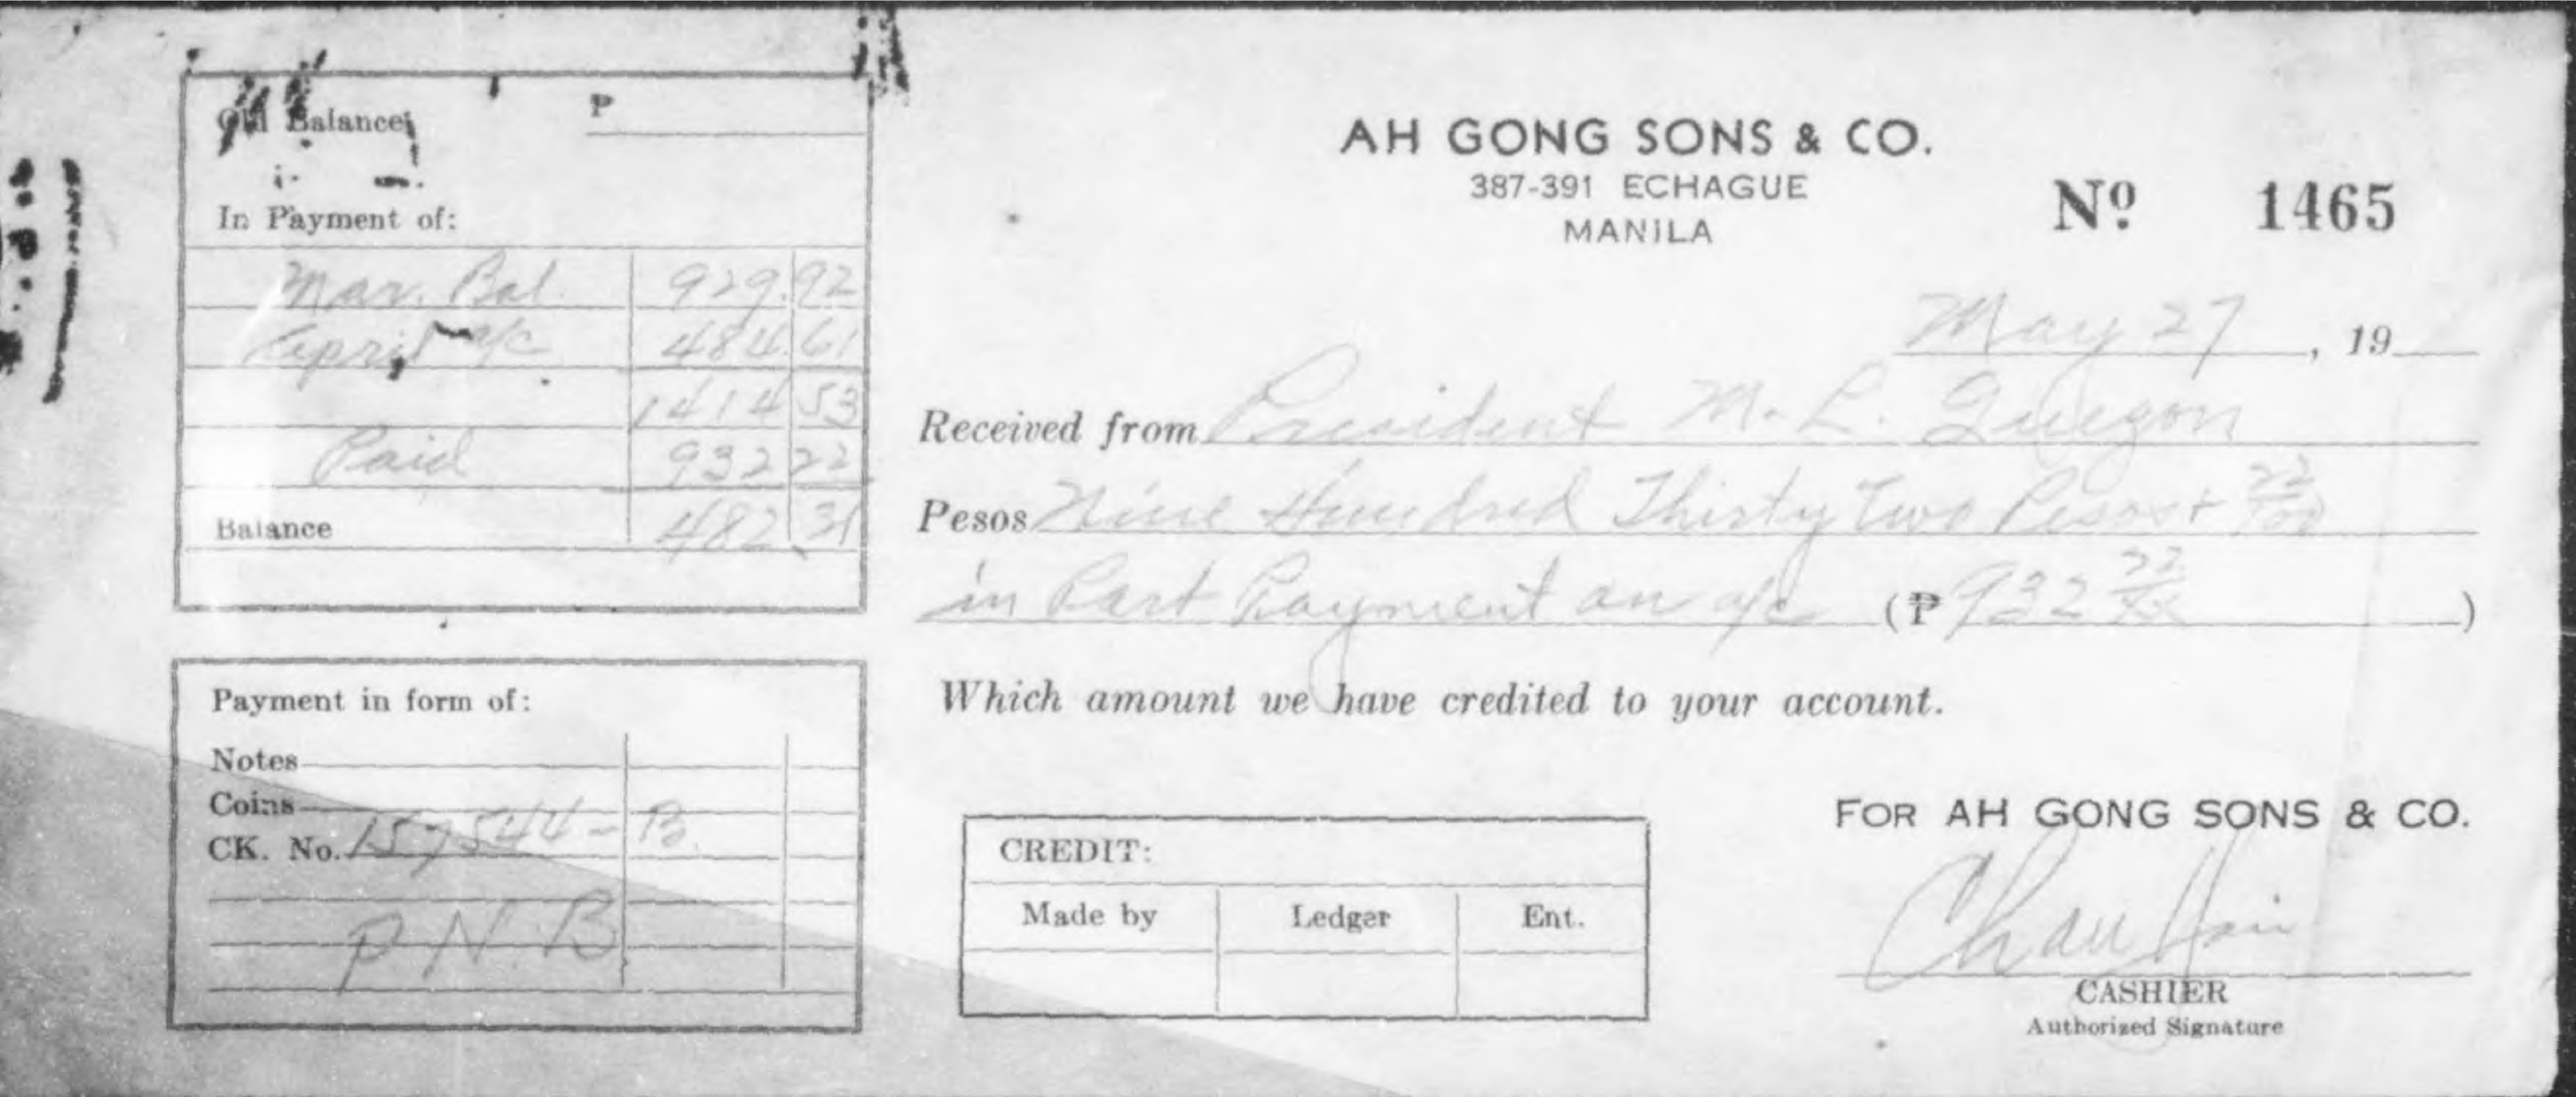 Old Balance ₱
In Payment of:
Mar. Bal. 929.92
April a/c 484.61
1414 53
Paid 932 22
Balance 482.31
Payment in form of:
Notes
Coins
CK. No. 157544-B.
P.N.B.
AH GONG SONS & CO.
387-391 ECHAGUE
MANILA
Nº 1465
May 27, 19
Received from President M. L. Quezon
Pesos Nine Hundred Thirty Two Pesos + 22/100
in Part Payment on a/c (₱ 932 22/xx)
Which amount we have credited to your account.
CREDIT:
Made by Ledger Ent.
FOR AH GONG SONS & CO.
Chau
CASHIER
Authorized Signature